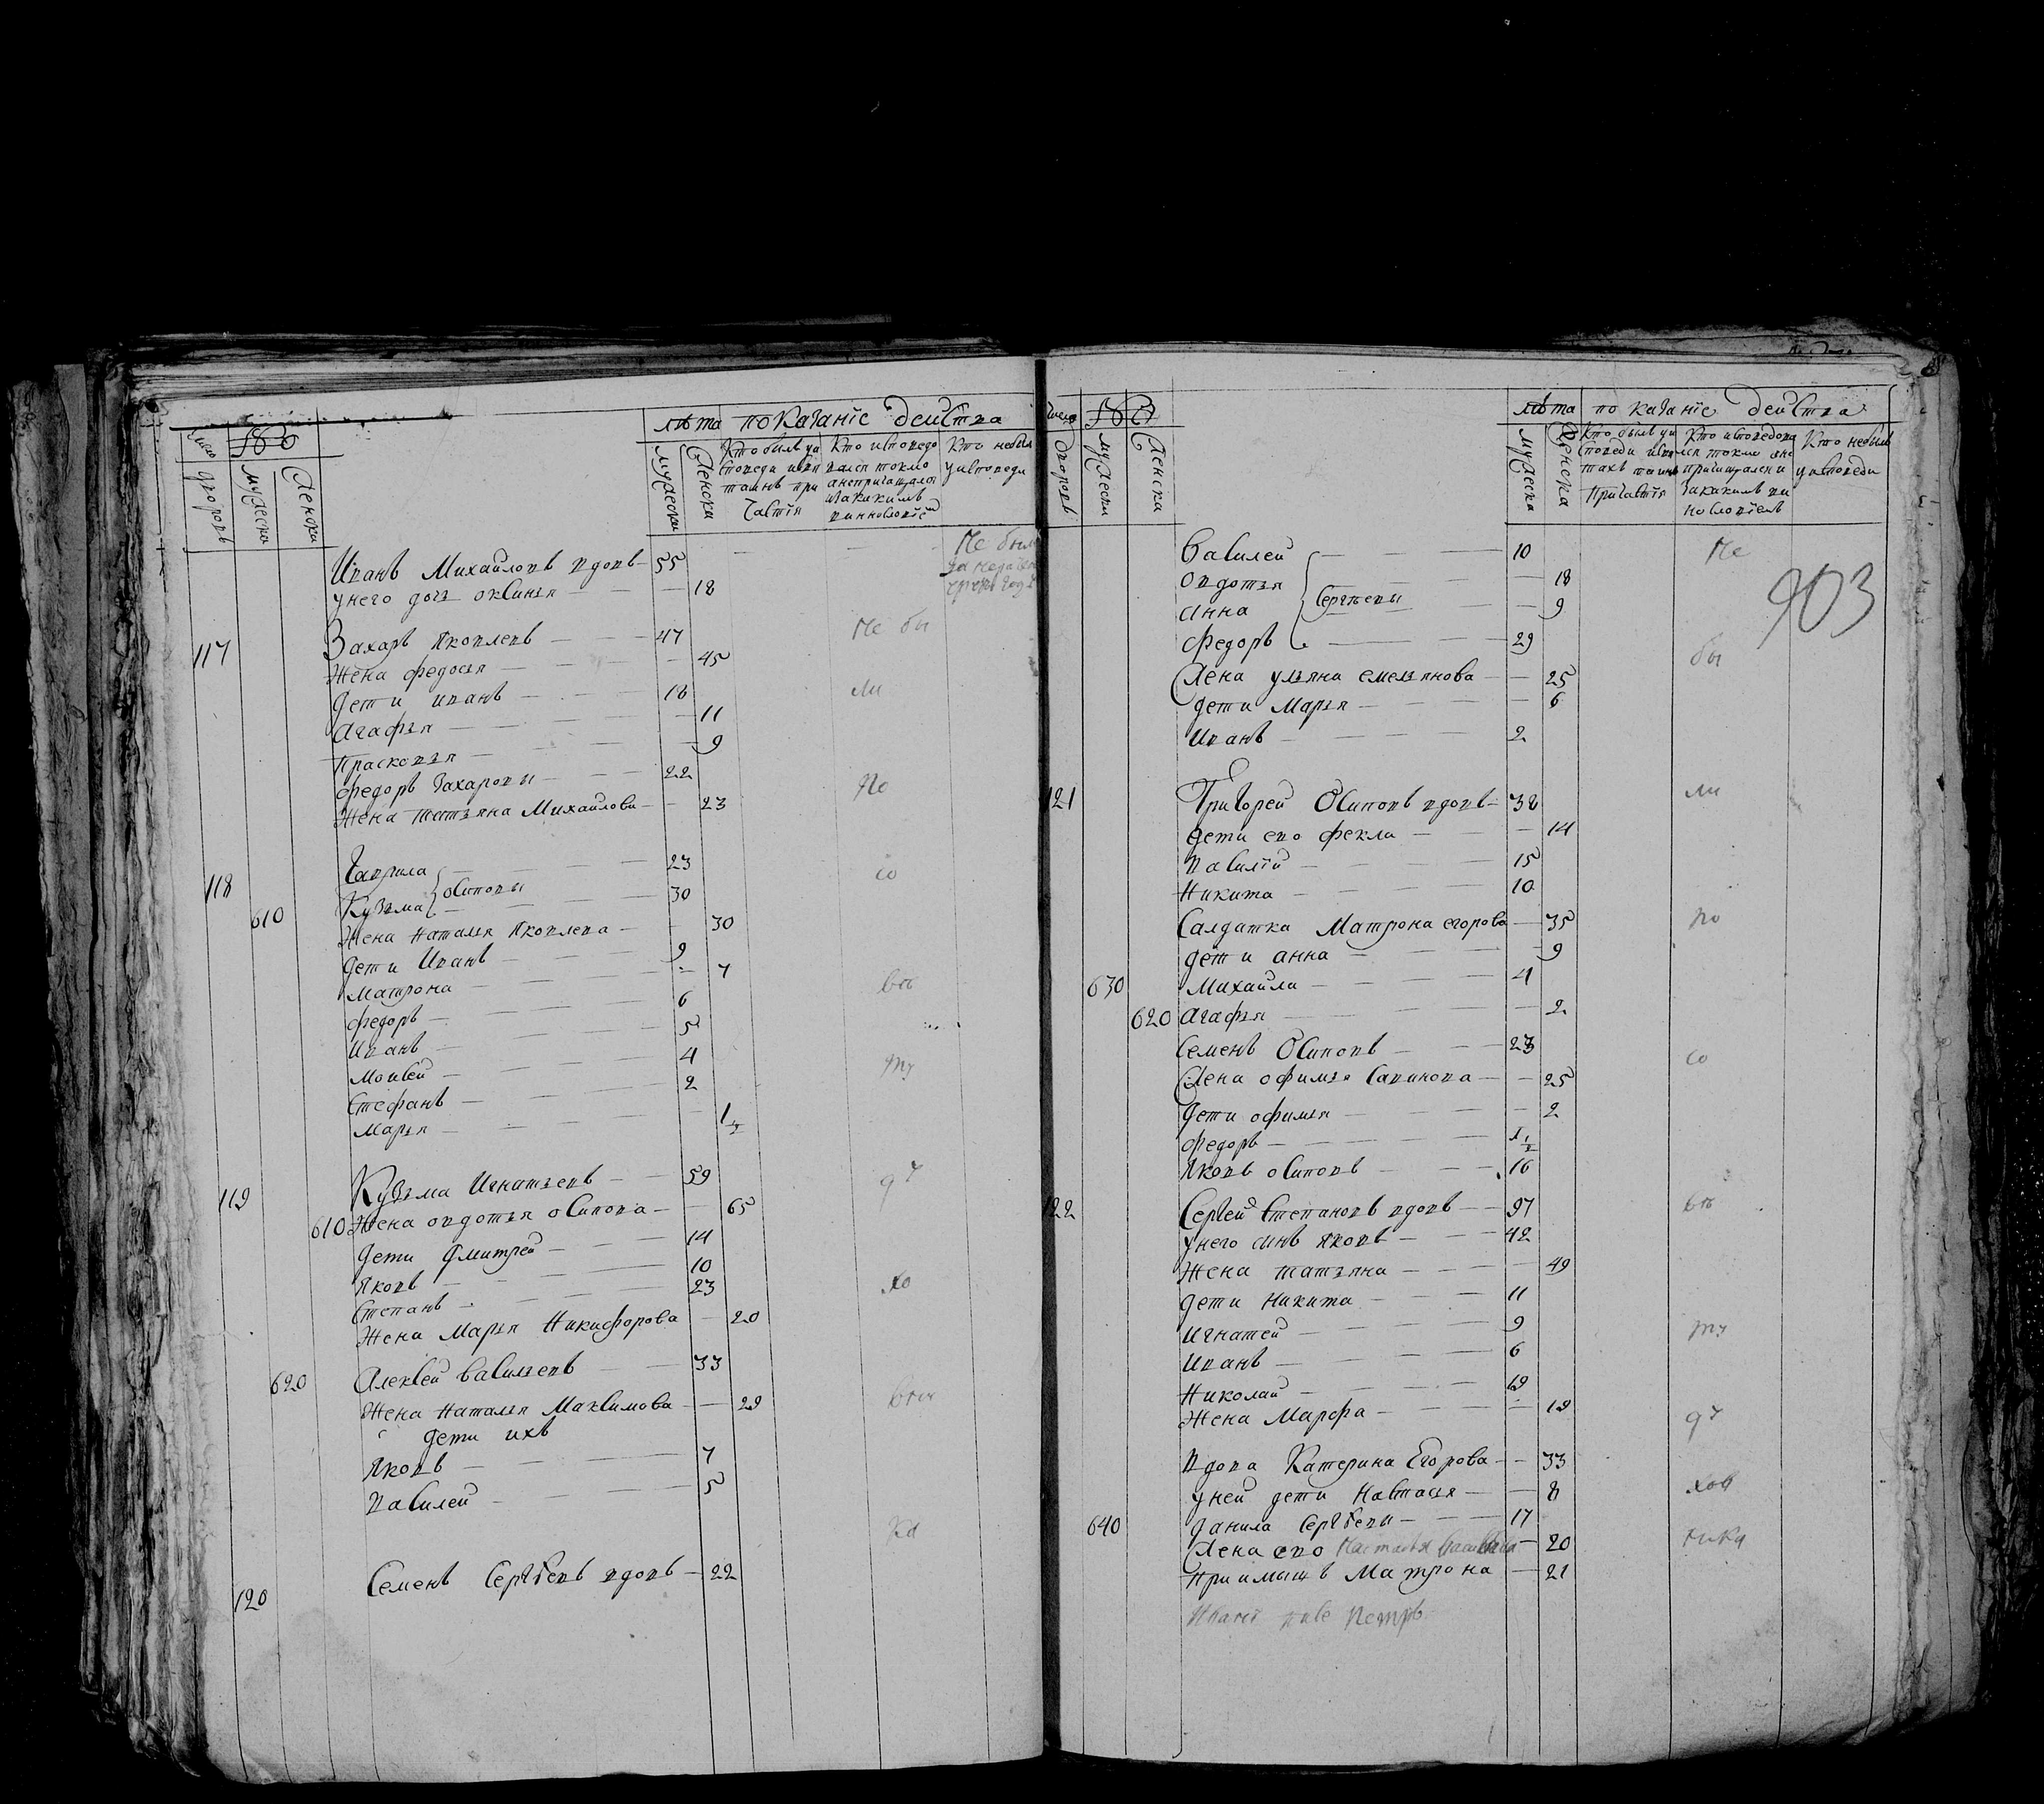 лѣта показание действа
Число дворовъ
мужеска
женска
мужеска
женска
Кто былъ у исповеди и в таинъ причастия
Кто исповедовался токмо а не причащался и за какимъ винословием
Кто не былъ у исповеди
Иванъ Михайловъ вдовъ 55
Не был
у него дочь оксинья 18
117 Захаръ Яковлевъ 47
Не бы
жена федосья 45
дети иванъ 18
ли
Агафья 11
Прасковья 9
федоръ Захаровы 22
жена татьяна Михайлова 23
по
118 Гаврила 23
осиповы
со
610 Кузма 30
жена наталья Яковлева 30
дети Иванъ 9
матрона 7
федоръ 6
Иванъ 5
Моисей 4
му
Стефанъ 2
Марья 1/2
119 Кузьма Игнатьевъ 59
610 жена овдотья осипова 65
дети Дмитрей 14
Яковъ 10
Степанъ 23
хо
жена Марья Никифорова 20
620 Алексей васильевъ 33
жена наталья Максимова 29
дети ихъ
Яковъ 7
василей 5
120 Семенъ Сергѣевъ вдовъ 22
Число дворовъ
мужески
женска
лѣта показание действа
мужеска
женска
Кто былъ у исповеди и в таинъ причастия
Кто исповедовался токмо а не причащался и за какимъ винословиемъ
Кто не былъ у исповеди
василей 10
Не
903
овдотья 18
Сергѣевы
Анна 9
федоръ 29
бы
жена ульяна емельянова 25
дети Марья 6
Иванъ 2
121 Григорей Осиповъ вдовъ 38
ли
дети ево фекла 14
василий 15
Никита 10
Салдатка Матрона егорова 35
по
дети анна 9
630 Михаила 4
620 Агафья 2
Семенъ Осиповъ 23
со
жена офимья Савинова 25
дети офимья 2
федоръ 1/2
Яковъ осиповъ 16
122 Сергей Степановъ вдовъ 97
у него сынъ Яковъ 42
жена татьяна 49
дети Никита 11
Игнатей 9
му
Иванъ 6
Николай 19
жена Марфа 19
вдова Катерина Егорова 33
у ней дети настасья 8
640 данила Сергѣевы 17
жена ево настасья 20
приимышъ Матрона 21
Петръ